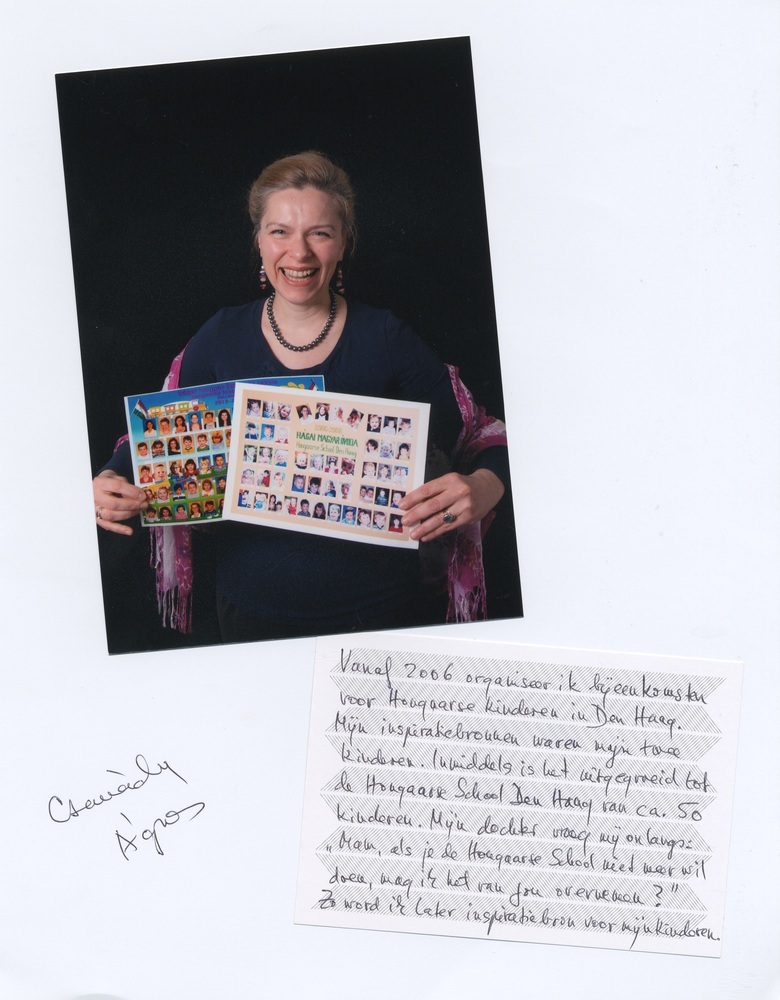 HAGAI MAGYAR ISKOLA
Hongaarse School Den Haag
Vanaf 2006 organiseer ik bijeenkomsten
voor Hongaarse kinderen in Den Haag.
Mijn inspiratiebronnen waren mijn twee
kinderen. Inmiddels is het uitgegroeid tot
de Hongaarse School Den Haag van ca. 50
kinderen. Mijn dochter vroeg mij onlangs:
„Mam, als je de Hongaarse School niet meer wil
doen, mag ik het van jou overnemen?"
Zo word ik later inspiratiebron voor mijn kinderen.
Ágnes